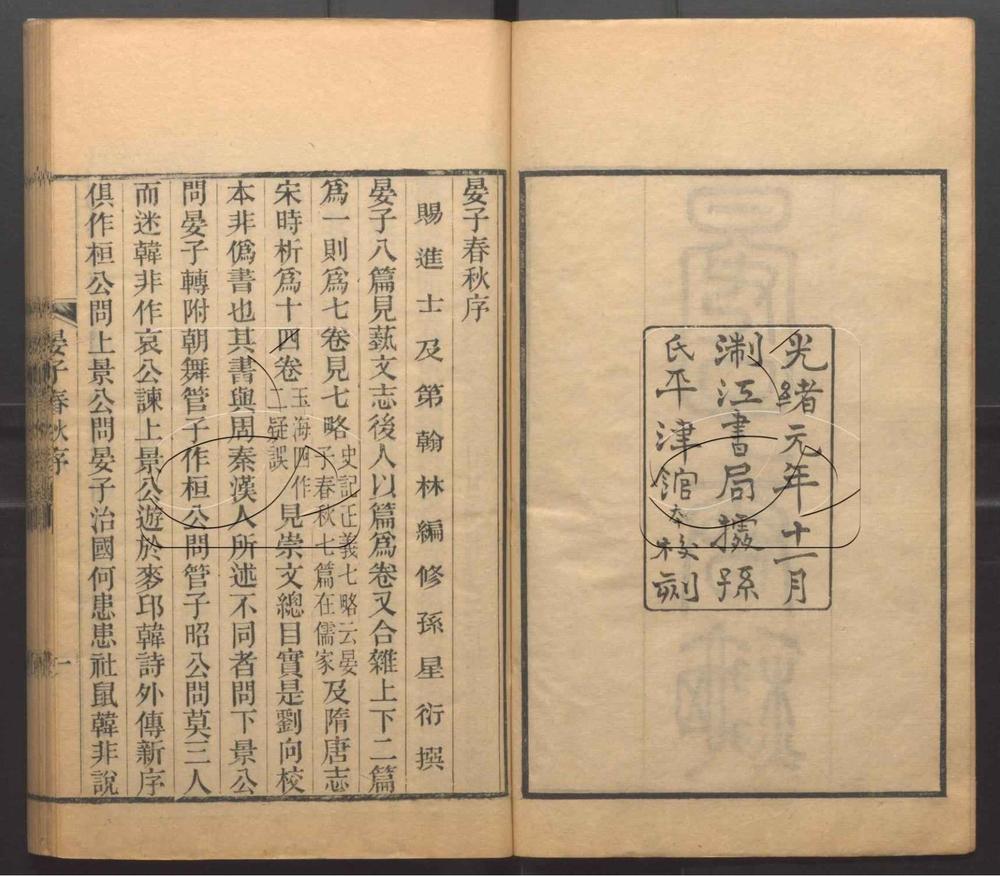 光緒元年十一月
浙江書局據孫
氏平津館本校刻
晏子春秋序
賜進士及第翰林編修孫星衍撰
晏子八篇見藝文志後人以篇爲卷又合雜上下二篇
爲一則爲七卷見七略史記正義七略云晏子春秋七篇在儒家及隋唐志
宋時析爲十四卷玉海四作二疑誤見崇文總目實是劉向校
本非僞書也其書與周秦漢人所述不同者問下景公
問晏子轉附朝舞管子作桓公問管子昭公問莫三人
而迷韓非作哀公諫上景公遊於麥邱韓詩外傳新序
俱作桓公問上景公問晏子治國何患患社鼠韓非說
晏子春秋序
一